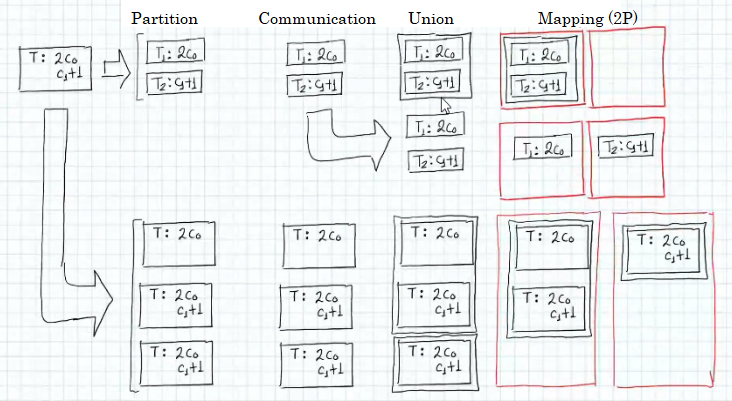 Partition Communication Union Mapping (2P)
T: 2c₀
c₁+1
T₁: 2c₀
T₂: c₁+1
T₁: 2c₀
T₂: c₁+1
T₁: 2c₀
T₂: c₁+1
T₁: 2c₀
T₂: c₁+1
T₁: 2c₀
T₂: c₁+1
T₁: 2c₀
T₂: c₁+1
T: 2c₀
T: 2c₀
T: 2c₀
T: 2c₀
T: 2c₀
c₁+1
T: 2c₀
c₁+1
T: 2c₀
c₁+1
T: 2c₀
c₁+1
T: 2c₀
c₁+1
T: 2c₀
c₁+1
T: 2c₀
c₁+1
T: 2c₀
c₁+1